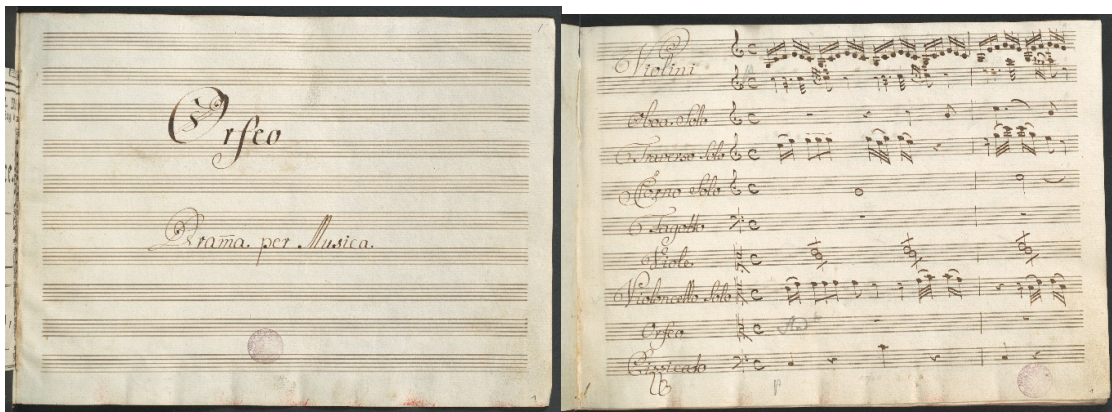 Orfeo
Dram̃a per Musica.
Violini
Oboa Solo
Traverso Solo
Corno Solo
Fagotto
Viole
Violoncello Solo
Orfeo
Pizzicato